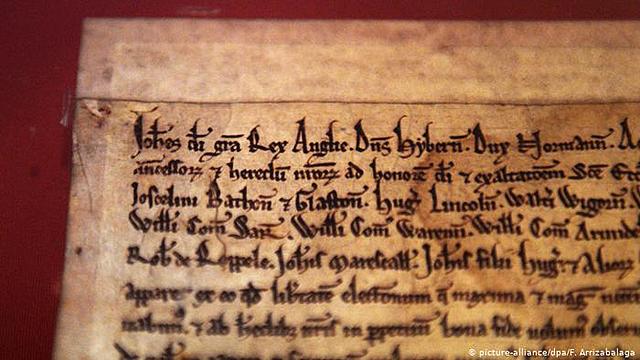 Joh̄es d̄i gr̄a Rex Anglie. Dn̄s Hybern̄. Dux Normann̄. A
ancessor ⁊ heredū meor ad honorē d̄i ⁊ exaltatōem Sc̄e Ecc
Joscelini Bathon̄ ⁊ Glaston̄. Huḡ Lincoln̄. Walt̄i Wigorn̄. W
Will̄i Com̄ Sarr̄. Will̄i Com̄ Warenn̄. Will̄i Com̄ Arunde
Rob̄ de Roppele. Joh̄is Marescall̄. Joh̄is filii Huḡ ⁊ Alior
appare ex eo qd̄ lib̄tatē electionum q̄ maxima ⁊ maḡ
⁊ ab hedib nr̄is in ppetuum bona fide
© picture-alliance/dpa/F. Arrizabalaga